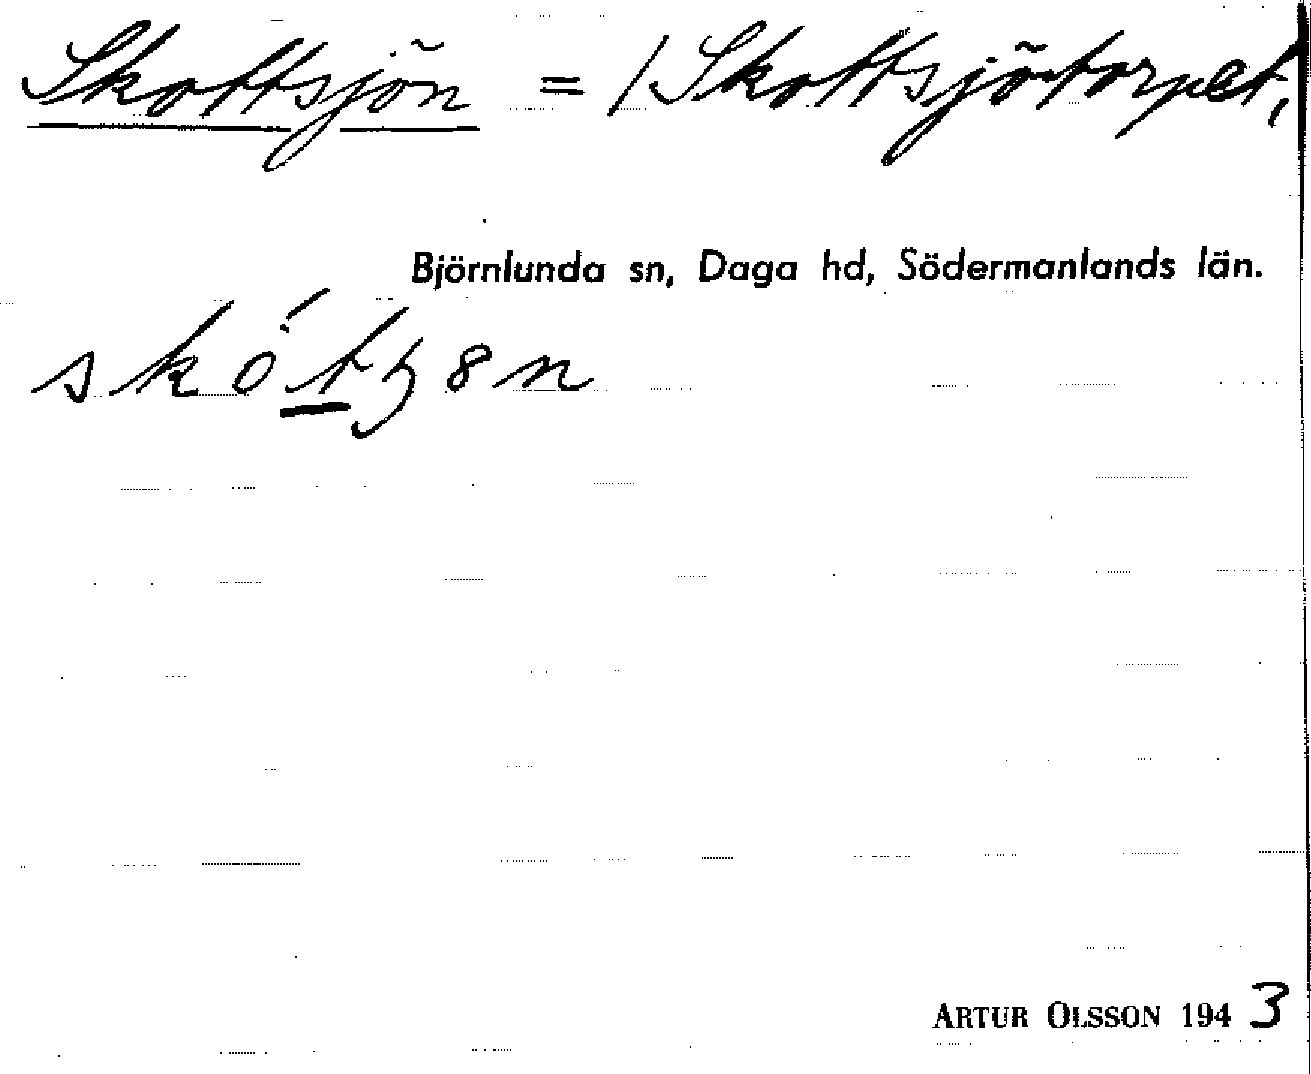 Skottsjön = / Skottsjötorpet,
Björnlunda sn, Daga hd, Södermanlands län.
ARTUR OLSSON 1943